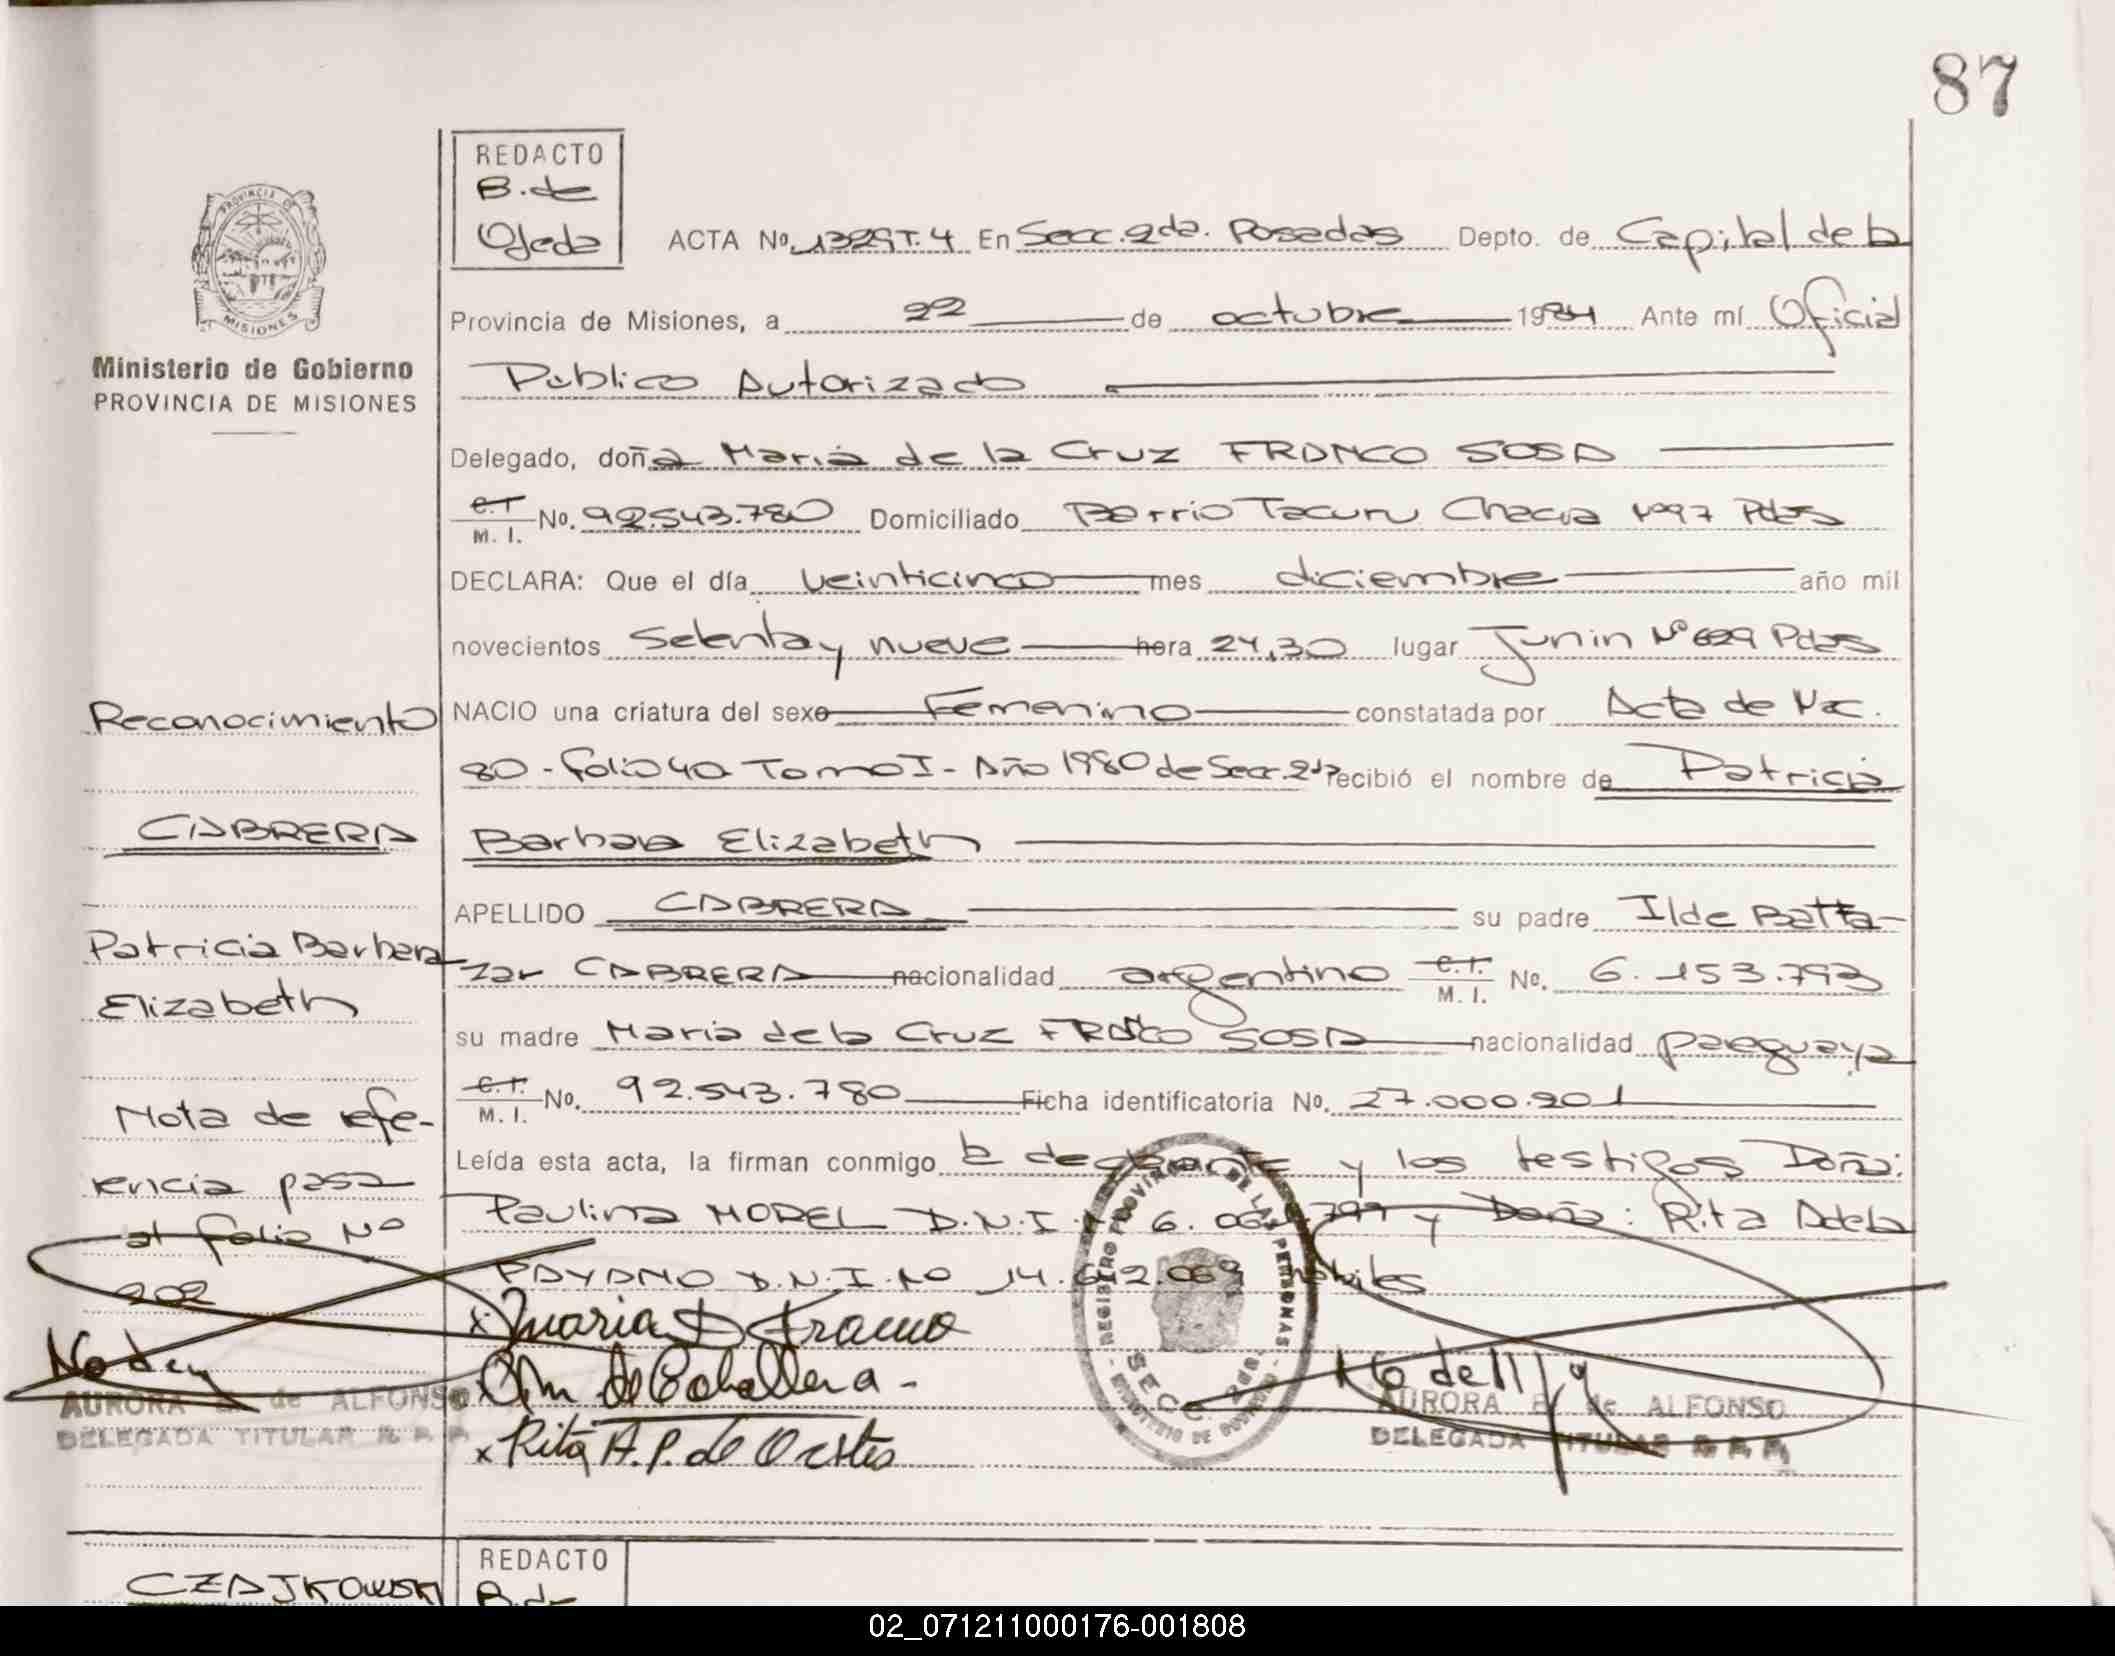 87
REDACTO
B. de
Ojeda
ACTA No. 1329 T. 4 En Secc. 2da. Posadas Depto. de Capital de la
PROVINCIA DE
MISIONES
Provincia de Misiones, a 22 de octubre 1984 Ante mí Oficial
Ministerio de Gobierno
PROVINCIA DE MISIONES
Publico Autorizado
Delegado, doña Maria de la Cruz FRANCO SOSA
C.I. M. I. No. 92.543.780 Domiciliado Barrio Tacuru Chacra Nº97 Pdas
DECLARA: Que el día veinticinco mes diciembre año mil
novecientos setenta y nueve hora 24,30 lugar Junin Nº 629 Pdas
Reconocimiento
NACIO una criatura del sexo Femenino constatada por Acta de Nac.
80 - folio 40 Tomo I - Año 1980 de Secc. 2da recibió el nombre de Patricia
CABRERA
Barbara Elizabeth
APELLIDO CABRERA su padre Ilde Balta-
Patricia Barbara
Elizabeth
zar CABRERA nacionalidad argentino C.I. M. I. No. 6.153.793
su madre Maria de la Cruz FRANCO SOSA nacionalidad paraguaya
C.I. M. I. No. 92.543.780 Ficha identificatoria No. 27.000.201
Nota de refe-
rencia pasa
al folio Nº
202
Leída esta acta, la firman conmigo la declarante y los testigos Doña:
Paulina MOREL D.N.I. 6. y Doña: Rita Adela
PAYANO D.N.I. No 14.612.069 habiles
x Maria D Franco
de Caballera
x Rita A. P. de
REGISTRO PROVINCIAL DE LAS PERSONAS
SECC. 2da.
MINISTERIO DE GOBIERNO
AURORA de ALFONSO
DELEGADA TITULAR R. P. P.
AURORA de ALFONSO
DELEGADA TITULAR R. P. P.
CZAJKOWSKI
REDACTO
B. de
02_071211000176-001808